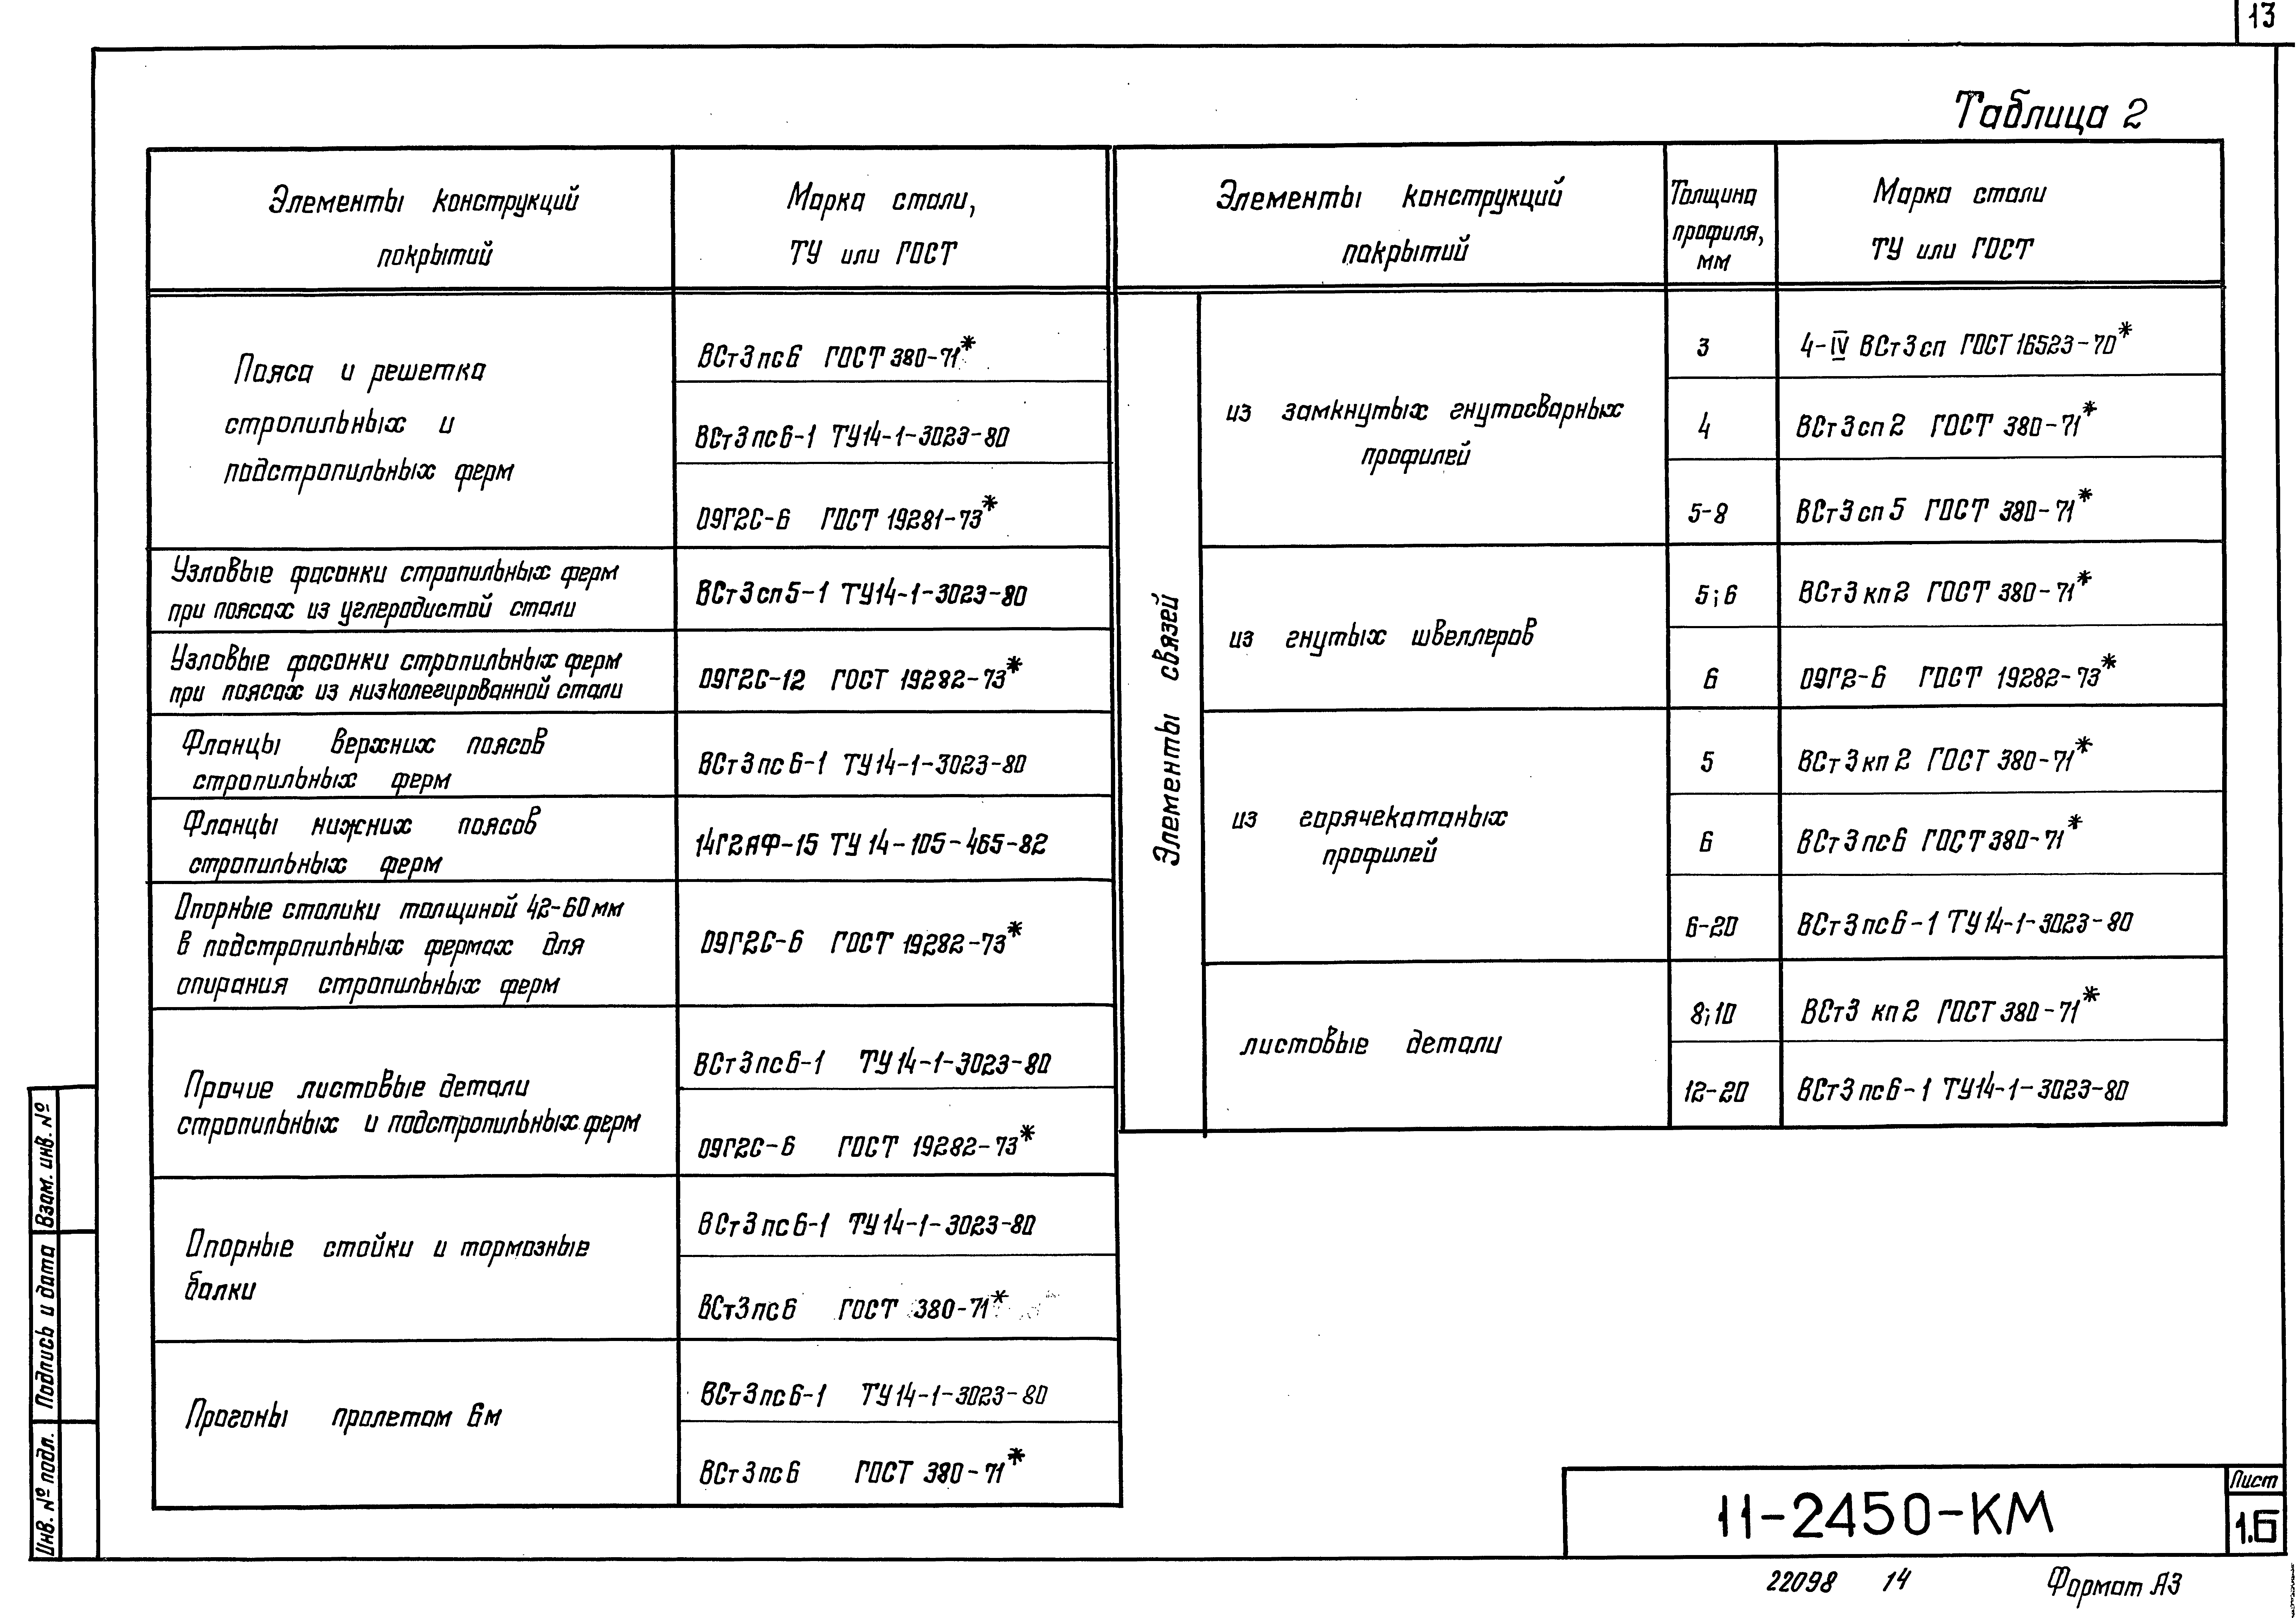 13
Таблица 2
Элементы конструкций
покрытий
Марка стали,
ТУ или ГОСТ
Пояса и решетка
стропильных и
подстропильных ферм
ВСт3пс6 ГОСТ 380-71*
ВСт3пс6-1 ТУ14-1-3023-80
09Г2С-6 ГОСТ 19281-73*
Узловые фасонки стропильных ферм
при поясах из углеродистой стали
ВСт3сп5-1 ТУ14-1-3023-80
Узловые фасонки стропильных ферм
при поясах из низколегированной стали
09Г2С-12 ГОСТ 19282-73*
Фланцы верхних поясов
стропильных ферм
ВСт3пс6-1 ТУ14-1-3023-80
Фланцы нижних поясов
стропильных ферм
14Г2АФ-15 ТУ 14-105-465-82
Опорные столики толщиной 42-60мм
в подстропильных фермах для
опирания стропильных ферм
09Г2С-6 ГОСТ 19282-73*
Прочие листовые детали
стропильных и подстропильных ферм
ВСт3пс6-1 ТУ14-1-3023-80
09Г2С-6 ГОСТ 19282-73*
Опорные стойки и тормозные
балки
ВСт3пс6-1 ТУ14-1-3023-80
ВСт3пс6 ГОСТ 380-71*
Прогоны пролетом 6м
ВСт3пс6-1 ТУ14-1-3023-80
ВСт3пс6 ГОСТ 380-71*
Элементы конструкций
покрытий
Толщина
профиля,
мм
Марка стали
ТУ или ГОСТ
Элементы связей
из замкнутых гнутосварных
профилей
3
4-IV ВСт3сп ГОСТ 16523-70*
4
ВСт3сп2 ГОСТ 380-71*
5-8
ВСт3сп5 ГОСТ 380-71*
из гнутых швеллеров
5;6
ВСт3кп2 ГОСТ 380-71*
6
09Г2-6 ГОСТ 19282-73*
из горячекатаных
профилей
5
ВСт3кп2 ГОСТ 380-71*
6
ВСт3пс6 ГОСТ 380-71*
6-20
ВСт3пс6-1 ТУ14-1-3023-80
листовые детали
8;10
ВСт3 кп2 ГОСТ 380-71*
12-20
ВСт3пс6-1 ТУ14-1-3023-80
Взам. инв. №
Подпись и дата
Инв. № подл.
11-2450-КМ
Лист
1.Б
22098 14 Формат А3